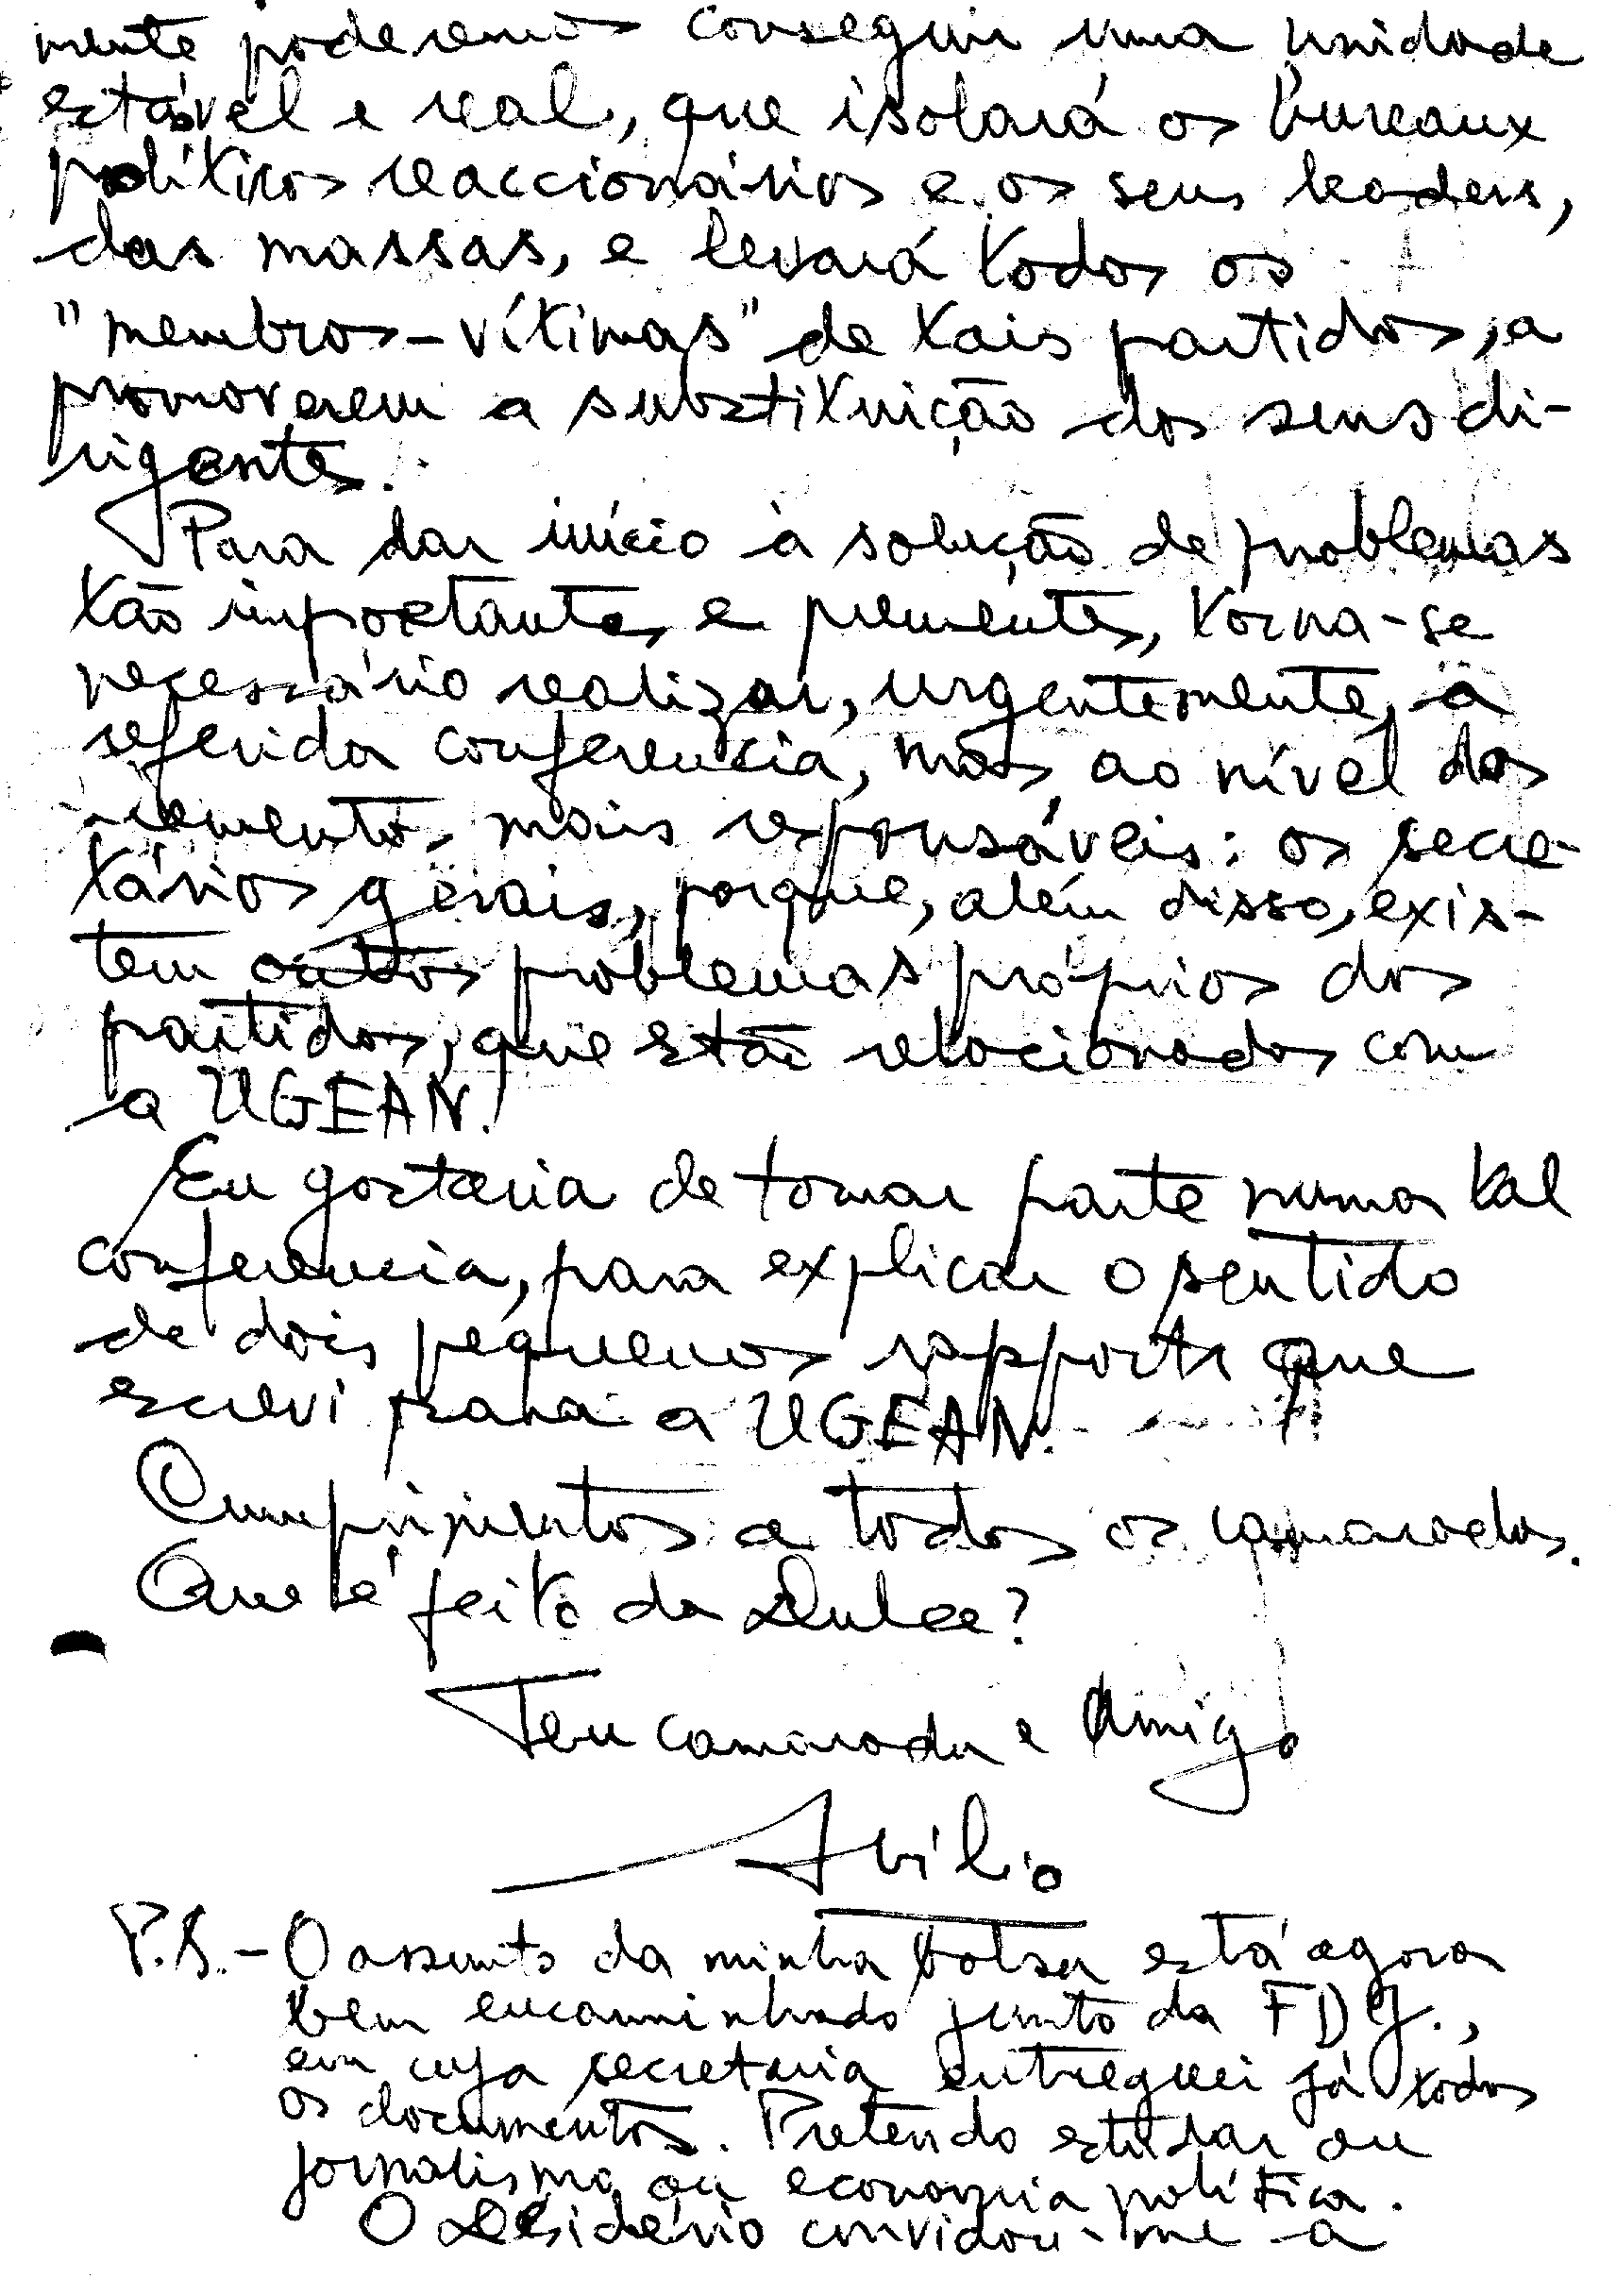 mente poderemos conseguir uma unidade
estável e real, que isolará os bureaux
políticos reaccionários e os seus leaders,
das massas, e levará todos os
"membros-vítimas" de tais partidos, a
promoverem a substituição dos seus di-
rigentes.
Para dar início à solução de problemas
tão importantes e prementes, torna-se
necessário realizar, urgentemente, a
referida conferencia, mas, ao nível dos
elementos mais responsáveis: os secre-
tários gerais, porque, além disso, exis-
tem outros problemas próprios dos
partidos, que estão relacionados com
a UGEAN.
Eu gostaria de tomar parte numa tal
conferencia, para explicar o sentido
de dois pequenos rapports que
escrevi para a UGEAN.
Cumprimentos a todos os camaradas.
Que é feito da Dulce?
Teu camarada e Amigo
P.S. - O assunto da minha bolsa está agora
bem encaminhado junto da FDJ.,
em cuja secretaria entreguei já todos
os documentos. Pretendo estudar ou
jornalismo ou economia política.
O Desidério convidou-me a